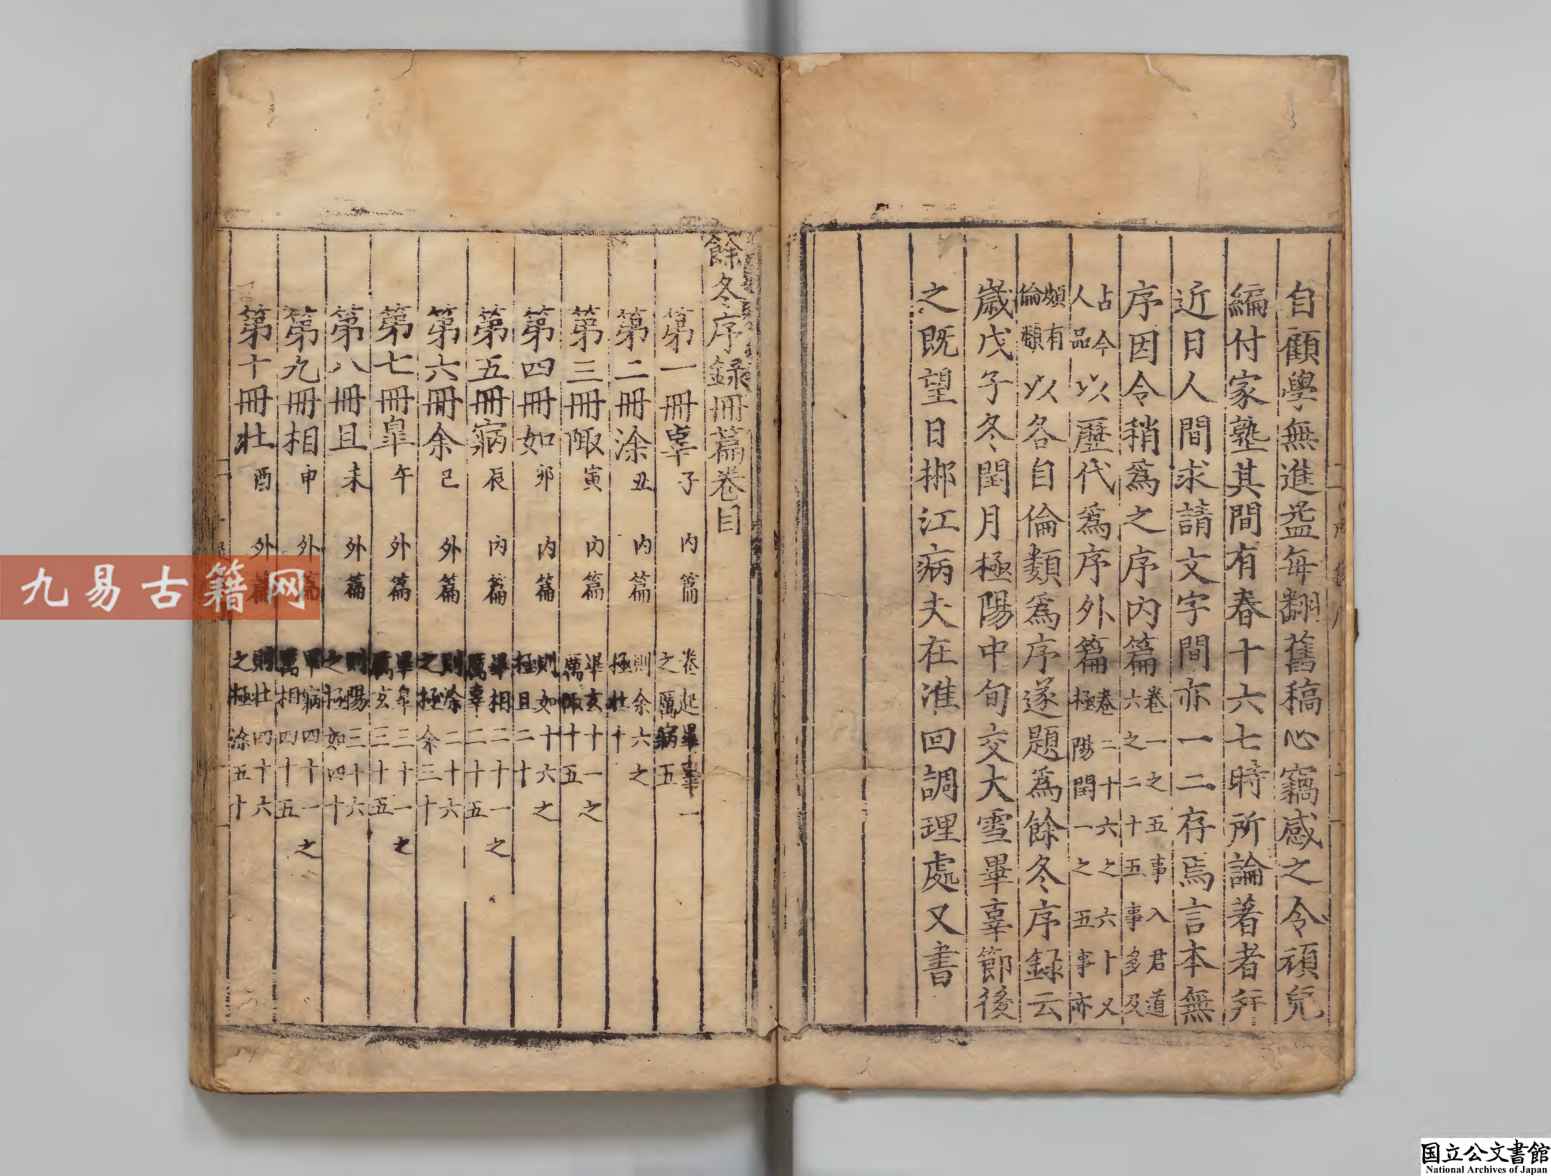 自顧學無進益每翻舊稿心竊感之令頑兒
編付家塾其間有春十六七時所論著者并
近日人間求請文字間亦一二存焉言本無
序因令稍爲之序內篇卷一之五事入君道
六之二十五事多及
占今
人品以歷代爲序外篇卷二十六之六十又
極陽閏一之五事亦
頗有
倫類以各自倫類爲序遂題爲餘冬序録云
歲戊子冬閏月極陽中旬交大雪畢辜節後
之既望日梆江病夫在淮回調理處又書
餘冬序録冊篇卷目
第一冊辜子 內篇 卷起畢辜一
之厲病五
第二冊涂丑 內篇 則余六之
極壯十
第三冊陬寅 內篇 畢玄十一之
厲陬十五
第四冊如夘 內篇 則如十六之
極且二十
第五冊寎辰 內篇 畢相二十一之
厲辜二十五
第六冊余巳 外篇 則涂二十六
之極余三十
第七冊臯午 外篇 畢臯三十一之
厲玄三十五
第八冊且未 外篇 則陽三十六
之極如四十
第九冊相申 外篇 畢病四十一之
厲相四十五
第十冊壯酉 外篇 則壯四十六
之極涂五十
九易古籍网
国立公文書館
National Archives of Japan